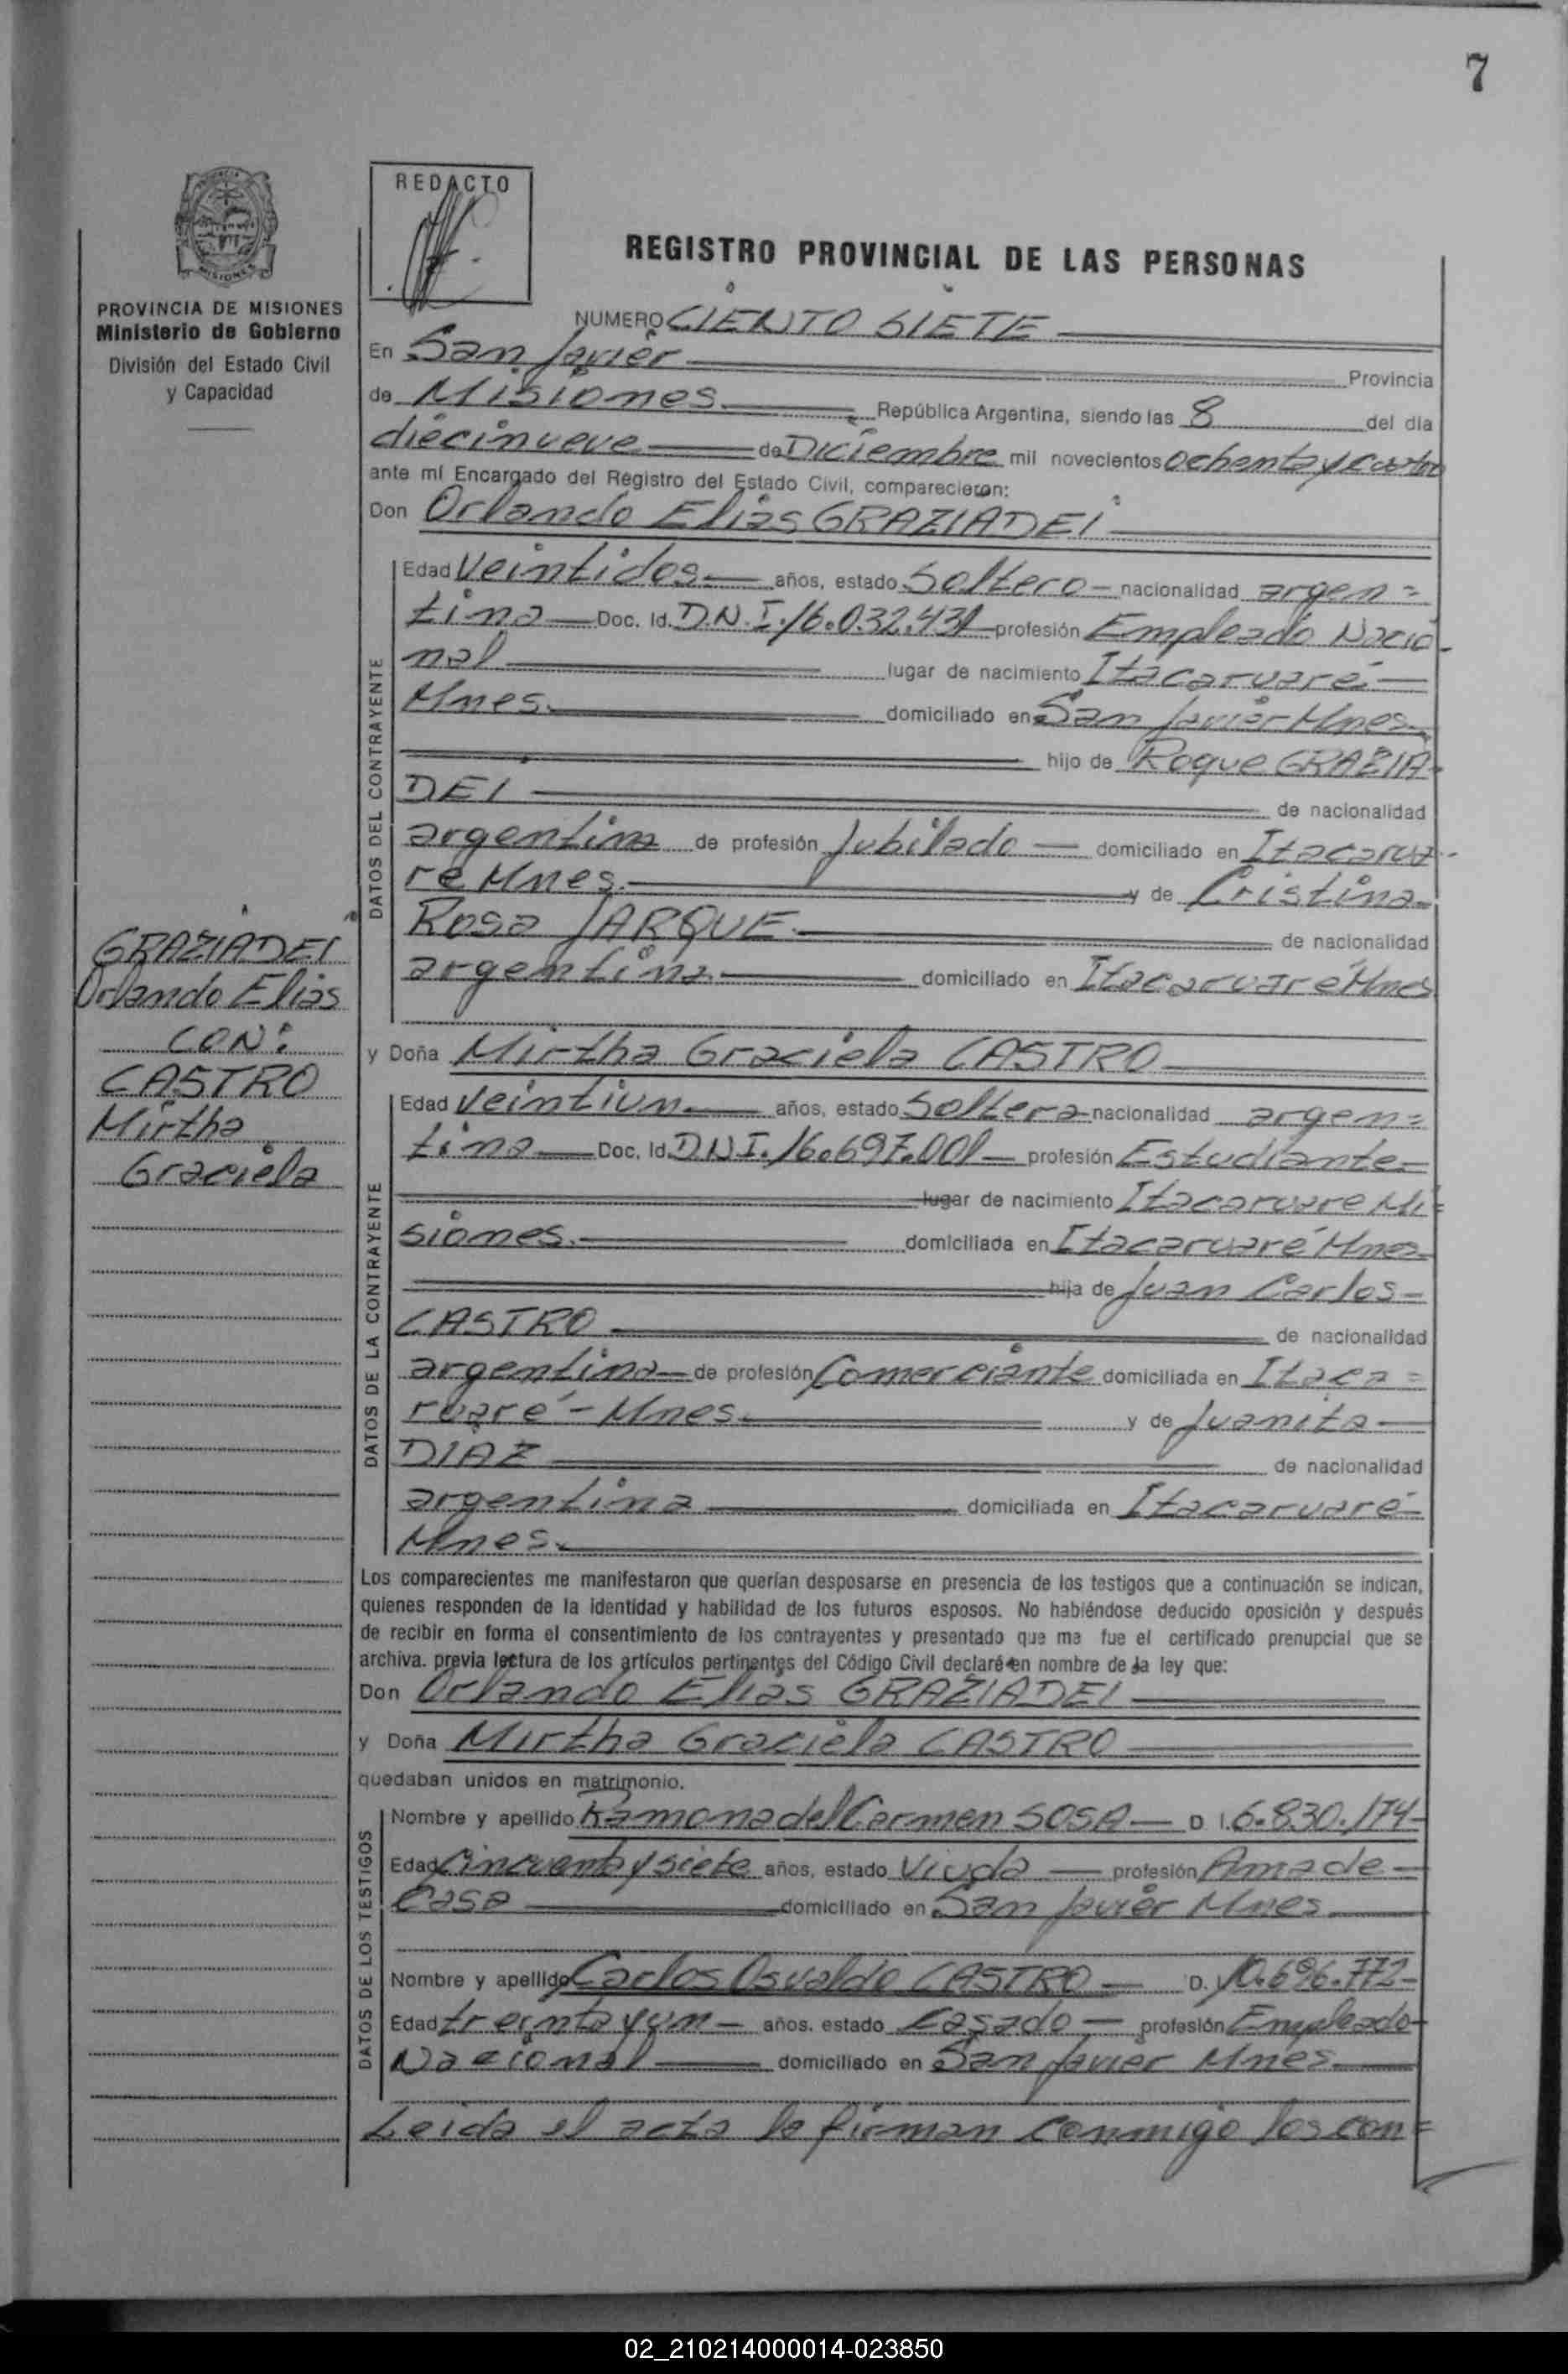 7
REDACTO
REGISTRO PROVINCIAL DE LAS PERSONAS
MISIONES
PROVINCIA DE MISIONES
Ministerio de Gobierno
División del Estado Civil
y Capacidad
NUMERO CIENTO SIETE
En San Javier Provincia
de Misiones República Argentina, siendo las 8 del día
diecinueve de Diciembre mil novecientos ochenta y cuatro
ante mí Encargado del Registro del Estado Civil, comparecieron:
Don Orlando Elias GRAZIADEI
DATOS DEL CONTRAYENTE
Edad Veintidos años, estado Soltero - nacionalidad argen=
tina Doc. Id. D.N.I. 16.032.431 profesión Empleado Nacio-
nal lugar de nacimiento Itacaruaré
Mnes. domiciliado en San Javier Mnes.
hijo de Roque GRAZIA-
DEI de nacionalidad
argentina de profesión Jubilado domiciliado en Itacarua-
ré Mnes. y de Cristina
Rosa JARQUE de nacionalidad
argentina domiciliado en Itacaruaré Mnes
GRAZIADEI
Orlando Elias
CON:
CASTRO
Mirtha
Graciela
y Doña Mirtha Graciela CASTRO
DATOS DE LA CONTRAYENTE
Edad Veintiun años, estado Soltera nacionalidad argen=
tina Doc. Id D.N.I. 16.697.001 profesión Estudiante
lugar de nacimiento Itacaruare Mi=
siones. domiciliada en Itacaruaré Mnes
hija de Juan Carlos
CASTRO de nacionalidad
argentina de profesión Comerciante domiciliada en Itaca=
ruaré - Mnes. y de Juanita
DIAZ de nacionalidad
argentina domiciliada en Itacaruaré
Mnes.
Los comparecientes me manifestaron que querían desposarse en presencia de los testigos que a continuación se indican,
quienes responden de la identidad y habilidad de los futuros esposos. No habiéndose deducido oposición y después
de recibir en forma el consentimiento de los contrayentes y presentado que me fue el certificado prenupcial que se
archiva. previa lectura de los artículos pertinentes del Código Civil declaré en nombre de la ley que:
Don Orlando Elias GRAZIADEI
y Doña Mirtha Graciela CASTRO
quedaban unidos en matrimonio.
DATOS DE LOS TESTIGOS
Nombre y apellido Ramona del Carmen SOSA D. I. 6.830.174
Edad Cincuenta y siete años, estado Viuda profesión Ama de
Casa domiciliado en San Javier Mnes
Nombre y apellido Carlos Osvaldo CASTRO D. 10.696.772
Edad treinta y un años. estado Casado profesión Empleado
Nacional domiciliado en San Javier Mnes
Leida el acta la firman conmigo los con=
02_210214000014-023850